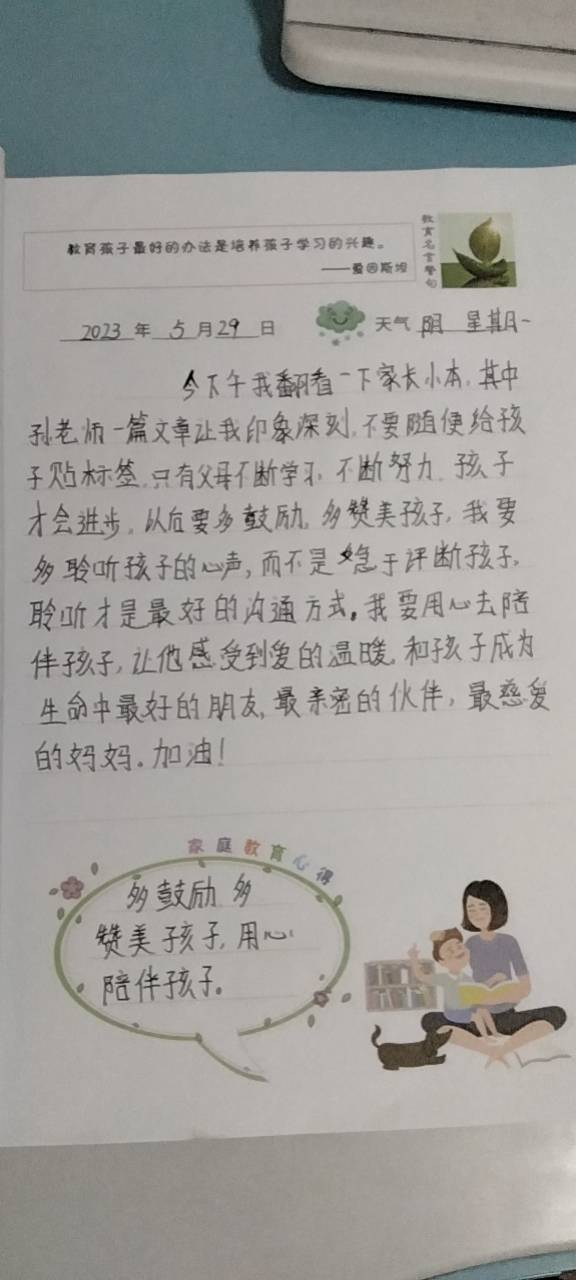 教育孩子最好的办法是培养孩子学习的兴趣。
——爱因斯坦
教育名言警句
2023 年 5 月 29 日 天气 阴 星期一
今下午我翻看一下家长小本,其中
孙老师一篇文章让我印象深刻,不要随便给孩
子贴标签,只有父母不断学习,不断努力,孩子
才会进步,以后要多鼓励,多赞美孩子,我要
多聆听孩子的心声,而不是急于评断孩子,
聆听才是最好的沟通方式。我要用心去陪
伴孩子,让他感受到爱的温暖,和孩子成为
生命中最好的朋友,最亲密的伙伴,最慈爱
的妈妈。加油!
家庭教育心得
多鼓励 多
赞美孩子,用心
陪伴孩子。